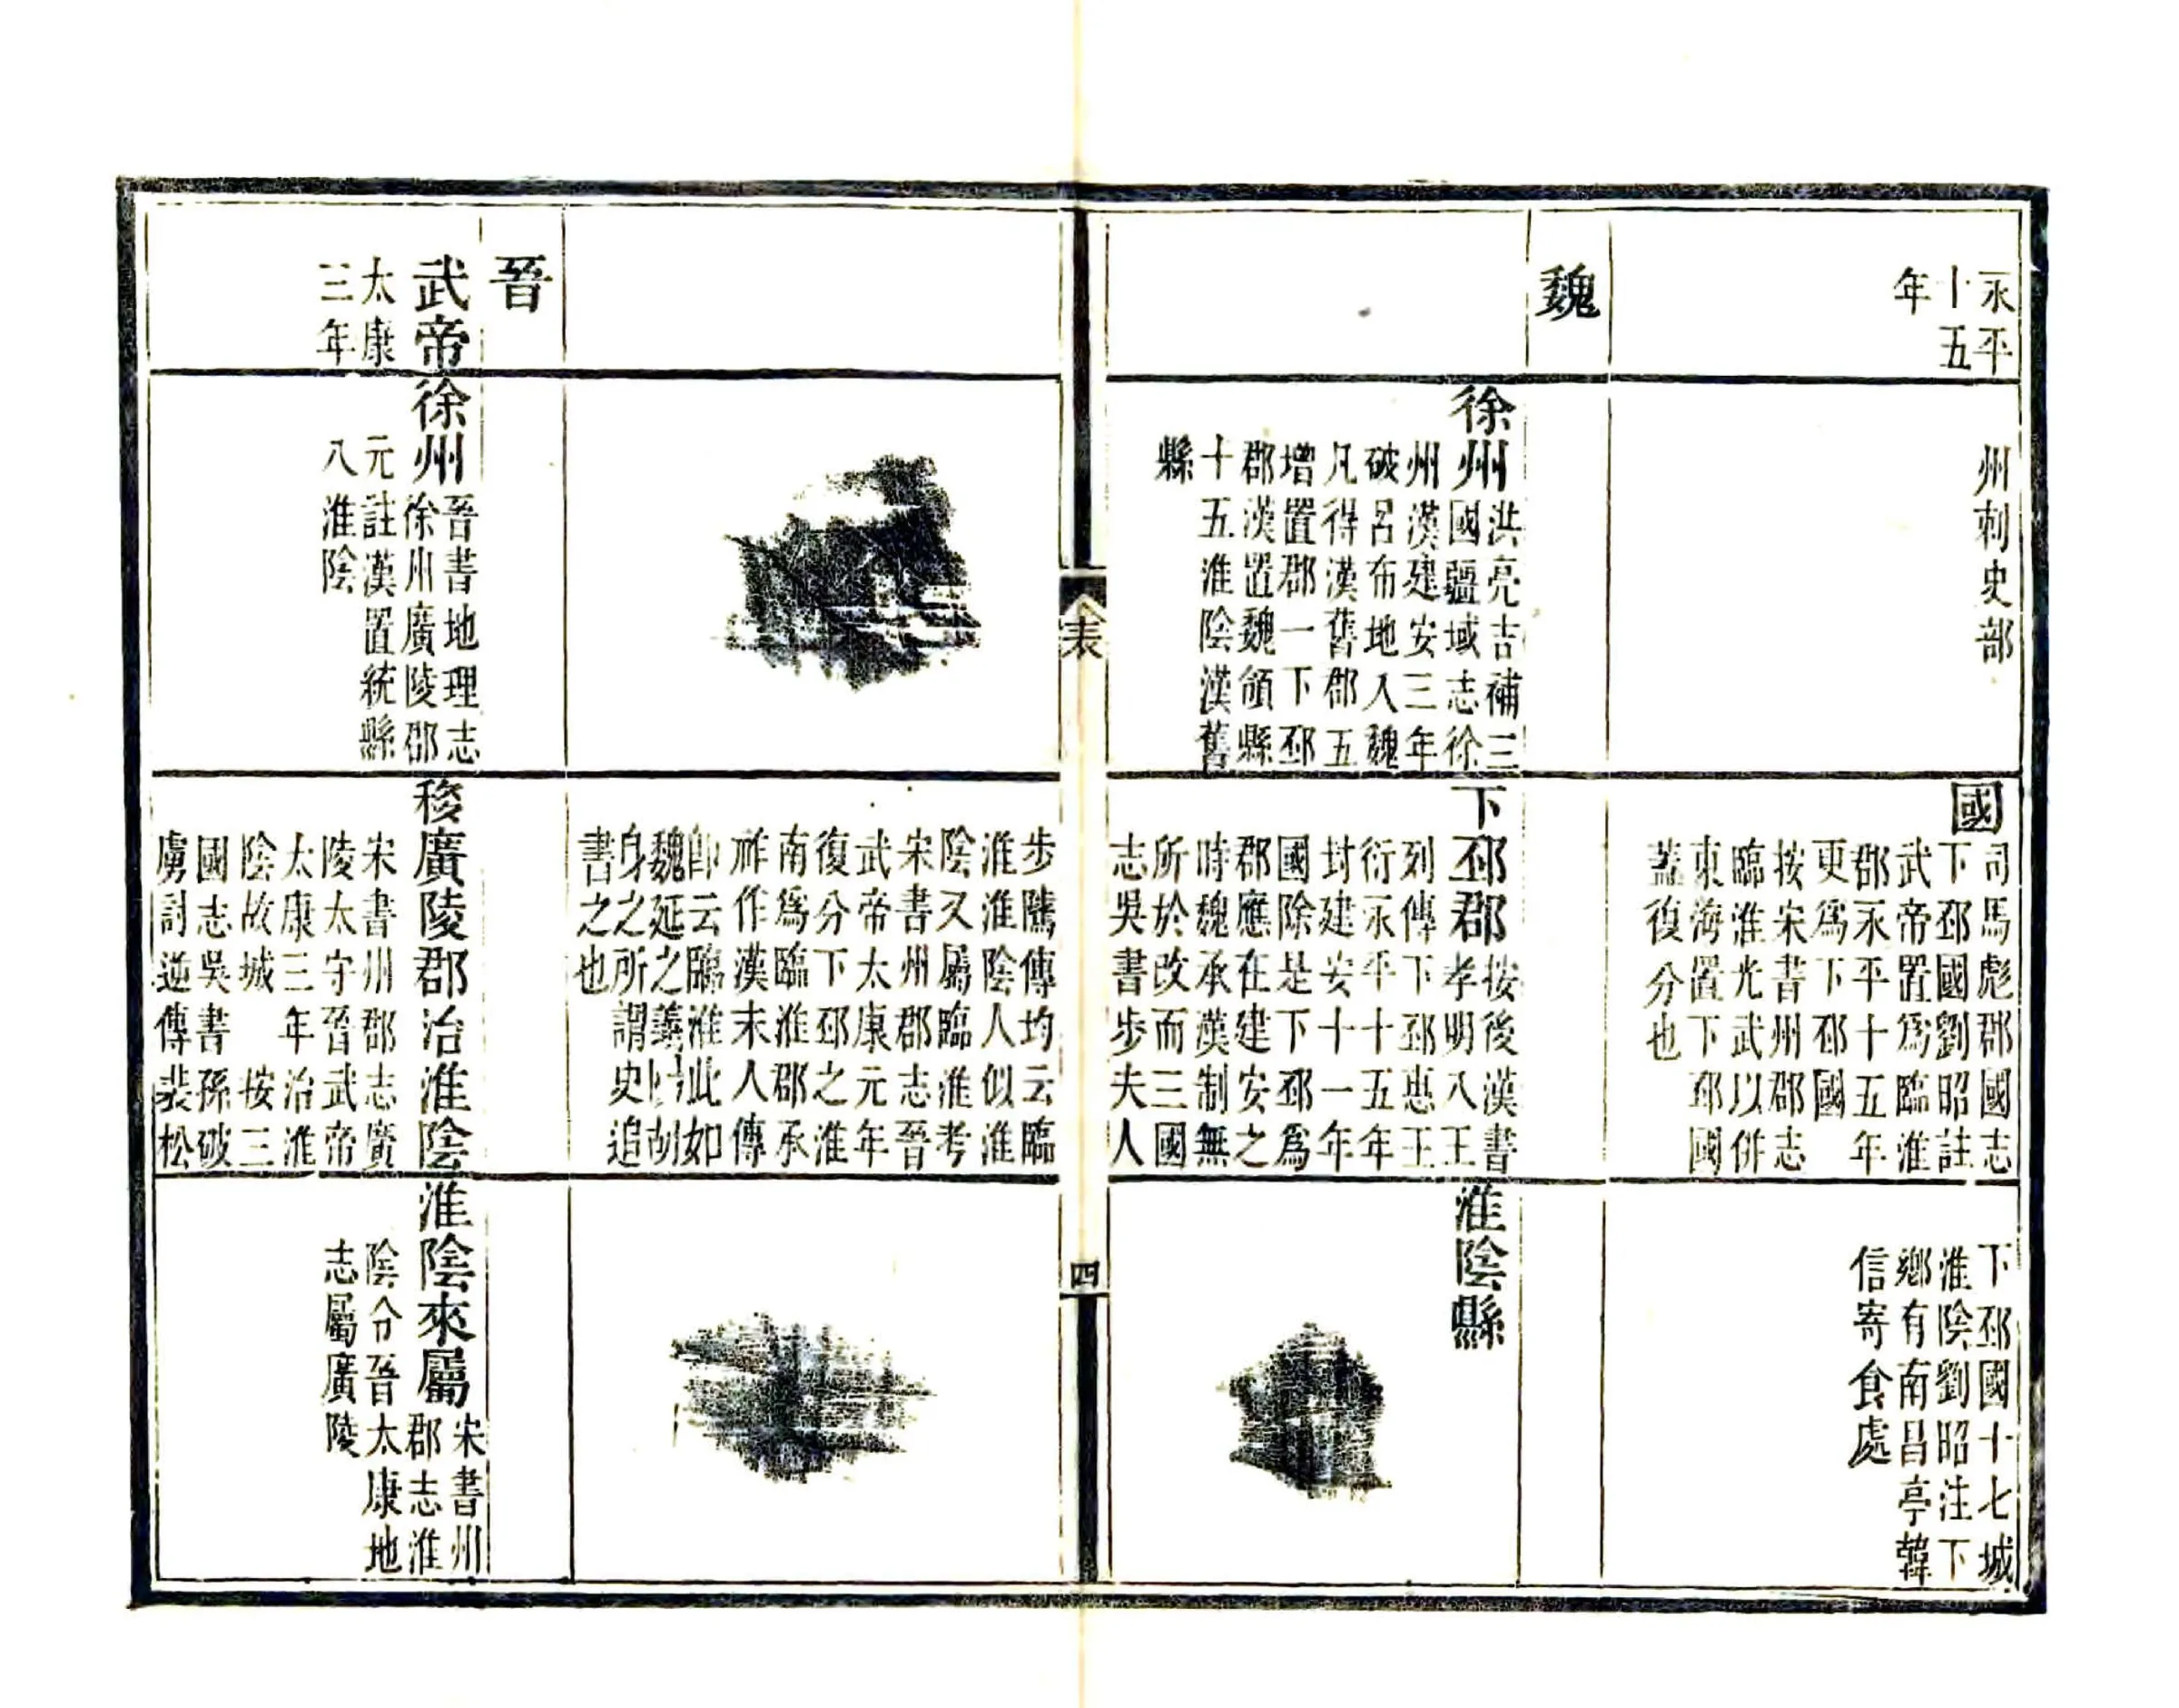 永平
十五
年
州刺史部
國
司馬彪郡國志
下邳國劉昭註
武帝置爲臨淮
郡永平十五年
更爲下邳國
按宋書州郡志
臨淮光武以併
東海置下邳國
蓋復分也
下邳國十七城
淮陰劉昭注下
鄉有南昌亭韓
信寄食處
魏
徐州
洪亮吉補三
國疆域志徐
州漢建安三年
破呂布地入魏
凡得漢舊郡五
增置郡一下邳
郡漢置魏領縣
十五淮陰漢舊
縣
下邳郡
按後漢書
孝明八王
列傳下邳惠王
衍永平十五年
封建安十一年
國除是下邳爲
郡應在建安之
時魏承漢制無
所於改而三國
志吳書步夫人
淮陰縣
表
四
步騭傳均云臨
淮淮陰人似淮
陰又屬臨淮考
宋書州郡志晉
武帝太康元年
復分下邳之淮
南爲臨淮郡承
祚作漢末人傳
卽云臨淮此如
魏延之義胡
身之所謂史追
書之也
晉
武帝
太康
三年
徐州
晉書地理志
徐州廣陵郡
元註漢置統縣
八淮陰
移廣陵郡治淮陰
宋書州郡志廣
陵太守晉武帝
太康三年治淮
陰故城 按三
國志吳書孫破
虜討逆傳裴松
淮陰來屬
宋書州
郡志淮
陰分晉太康地
志屬廣陵